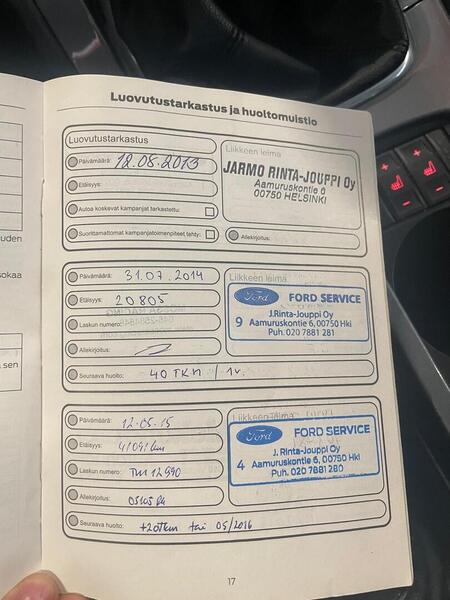 Luovutustarkastus ja huoltomuistio
Luovutustarkastus
Päivämäärä: 12.08.2013
Etäisyys:
Autoa koskevat kampanjat tarkastettu:
Suorittamattomat kampanjatoimenpiteet tehty:
Liikkeen leima
JARMO RINTA-JOUPPI Oy
Aamuruskontie 6
00750 HELSINKI
Allekirjoitus:
Päivämäärä: 31.07.2014
Etäisyys: 20805
Laskun numero:
Allekirjoitus:
Seuraava huolto: 40 TKM / 1v.
Liikkeen leima
Ford FORD SERVICE
J.Rinta-Jouppi Oy
9 Aamuruskontie 6, 00750 Hki
Puh. 020 7881 281
Päivämäärä: 12.05.15
Etäisyys: 41091 km
Laskun numero: 12990
Allekirjoitus:
Seuraava huolto: +20tkm tai 05/2016
Liikkeen leima
Ford FORD SERVICE
J. Rinta-Jouppi Oy
4 Aamuruskontie 6, 00750 Hki
Puh. 020 7881 280
17
uden
sokaa
sen